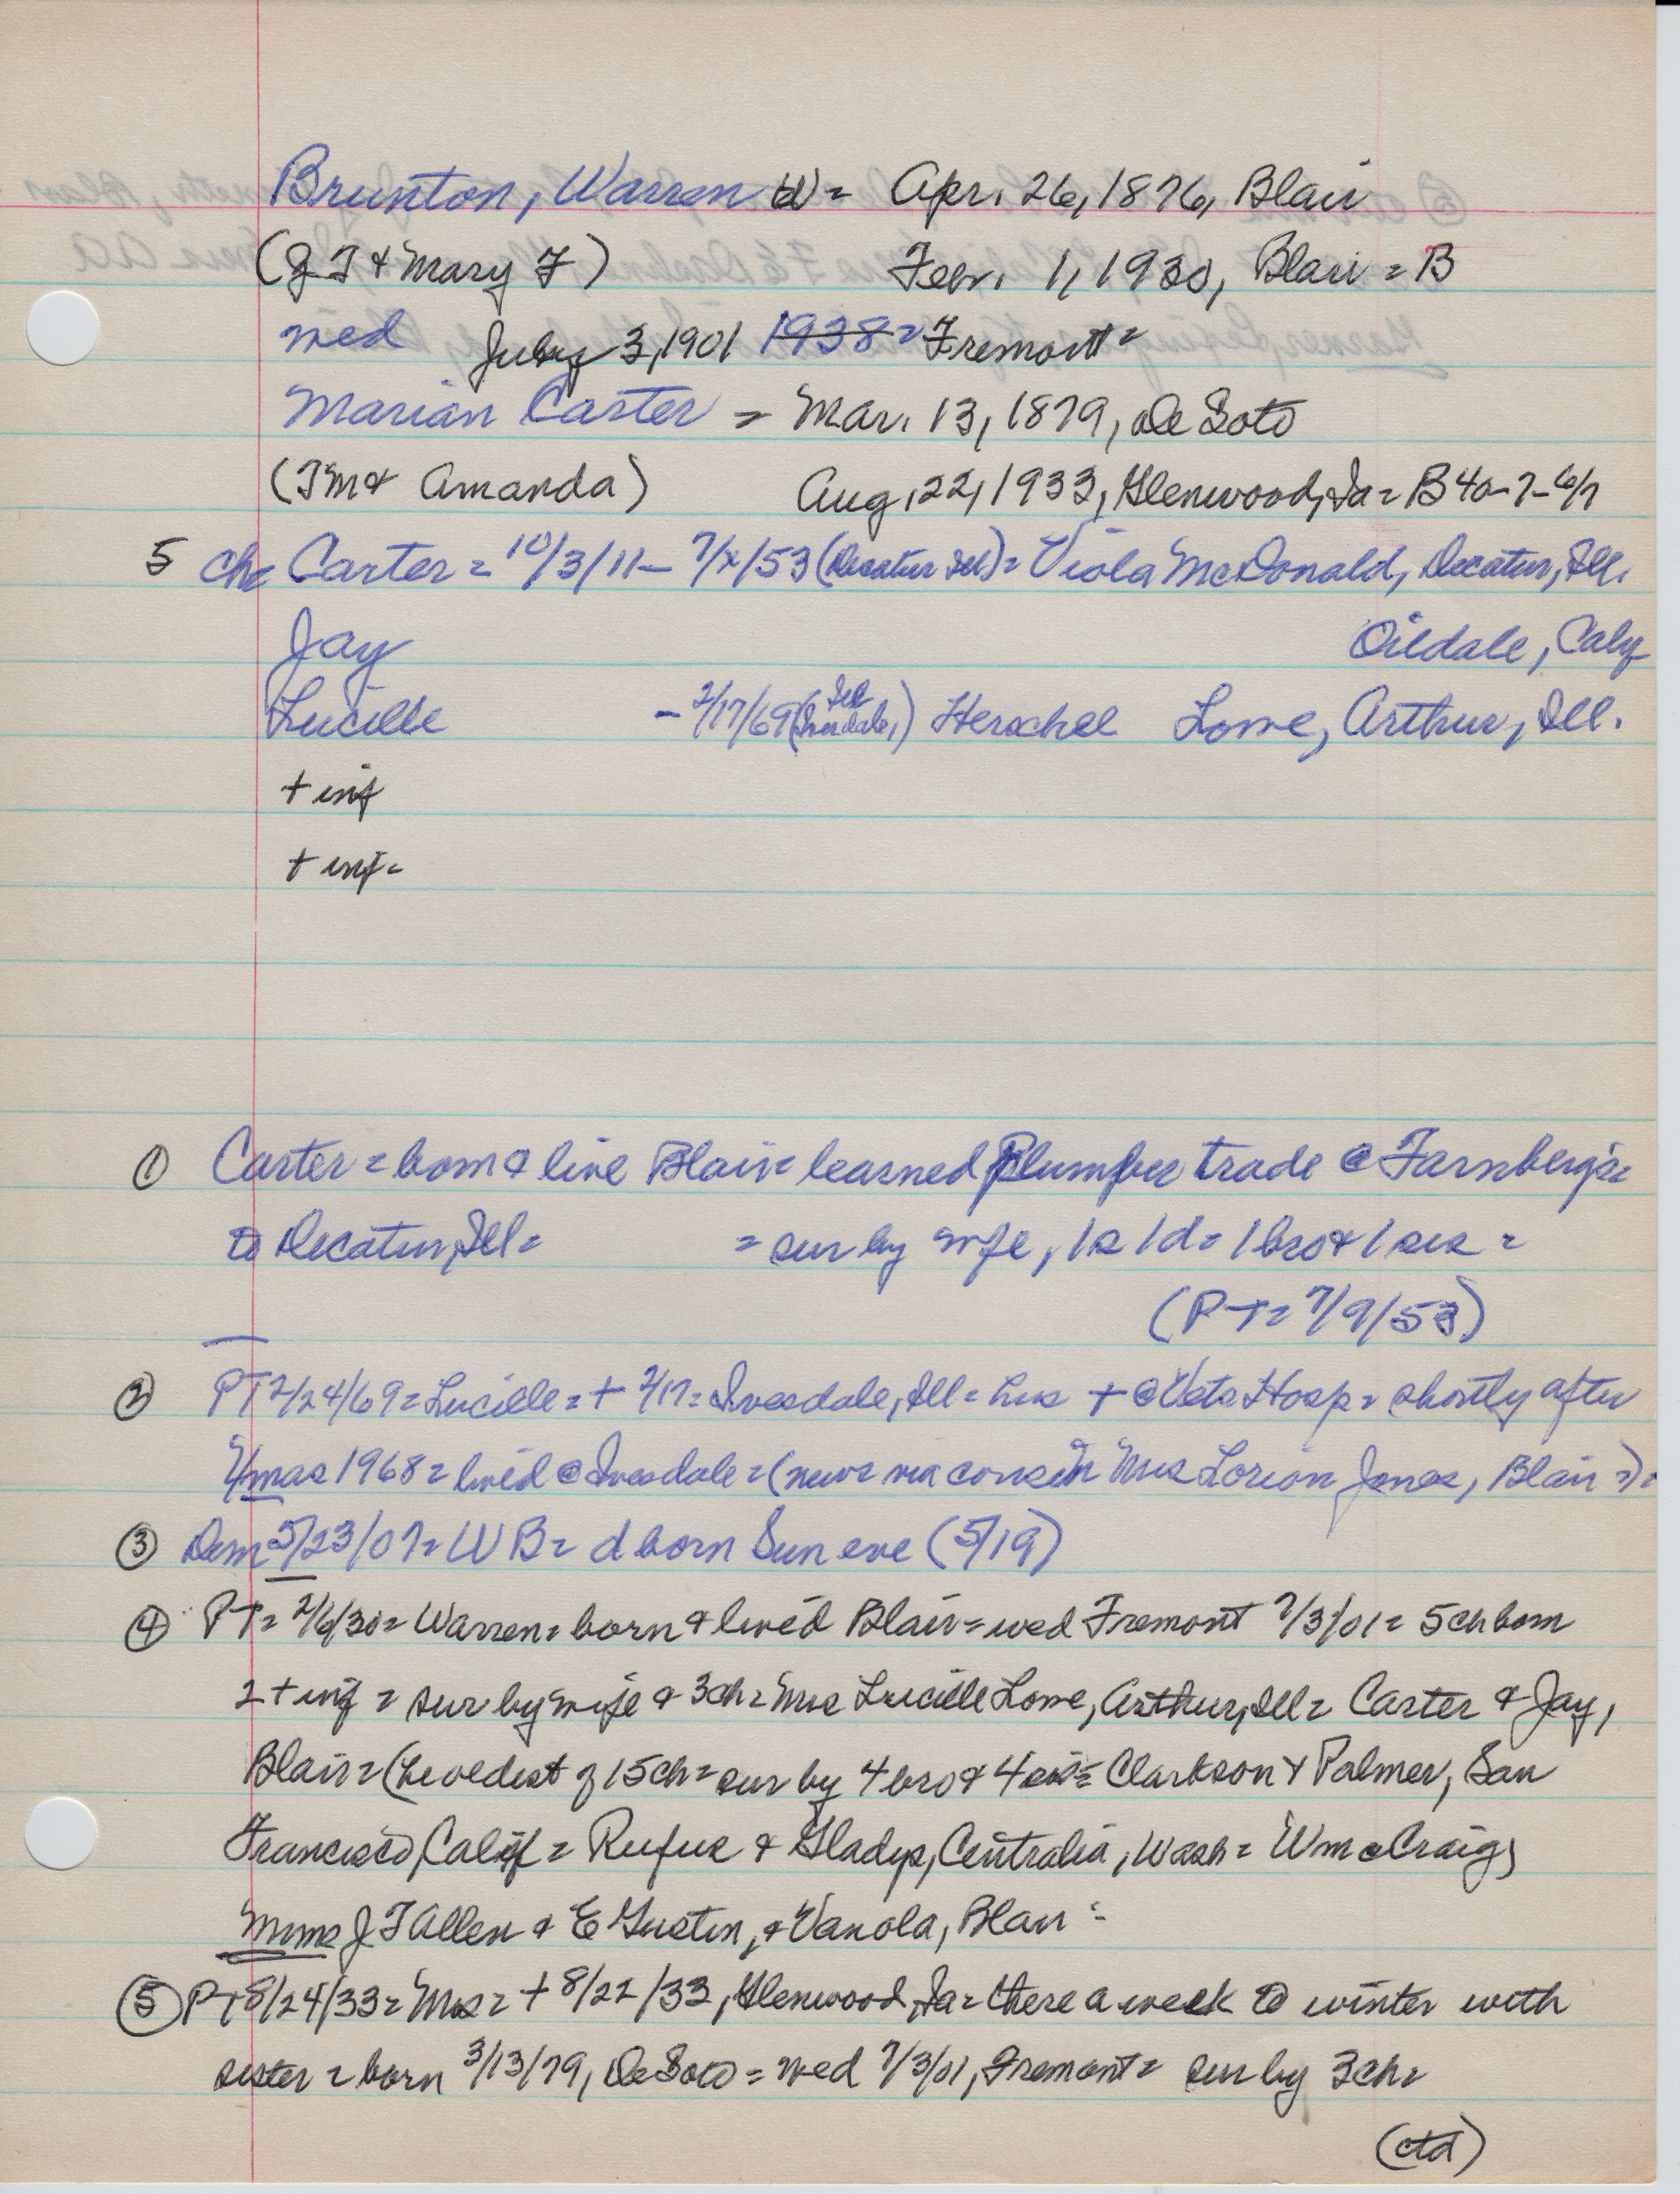 Brunton, Warren W = Apr. 26, 1876, Blair
(J T & Mary F) Febr. 1, 1930, Blair = B
wed July 3, 1901 1938 = Fremont =
Marian Carter = Mar. 13, 1879, De Soto
(T M & Amanda) Aug. 22, 1933, Glenwood, Ia = B 40-7-6/7
5 ch = Carter = 10/3/11 – 7/x/53 (Decatur Ill) = Viola McDonald, Decatur, Ill.
Jay Oildale, Calif
Lucille – 2/17/69 (Ivesdale, Ill) Herschel Lowe, Arthur, Ill.
+ inf
+ inf =
① Carter = born & live Blair = learned Plumber trade @ Farnberg's =
to Decatur, Ill = = sur by wife, 1 s 1 d = 1 bro & 1 sis =
(PT = 7/9/53)
② PT 2/24/69 = Lucille = + 2/17 = Ivesdale, Ill = hus + @ Vets Hosp = shortly after
Xmas 1968 = lived @ Ivesdale = (news via cousin Mrs Lorion Jones, Blair =) =
③ Dem 5/23/07 = W B = d born Sun eve (5/19)
④ PT = 2/6/30 = Warren = born & lived Blair = wed Fremont 7/3/01 = 5 ch born
2 + inf = sur by wife & 3 ch = Mrs Lucille Lowe, Arthur, Ill = Carter & Jay,
Blair = (he oldest of 15 ch = sur by 4 bro & 4 sis = Clarkson & Palmer, San
Francisco, Calif = Rufus & Gladys, Centralia, Wash = Wm & Craig,
Mmes J T Allen & E Gustin, & Vanola, Blair =
⑤ PT 8/24/33 = Mrs = + 8/22/33, Glenwood, Ia = there a week to winter with
sister = born 3/13/79, De Soto = wed 7/3/01, Fremont = sur by 3 ch =
(ctd)